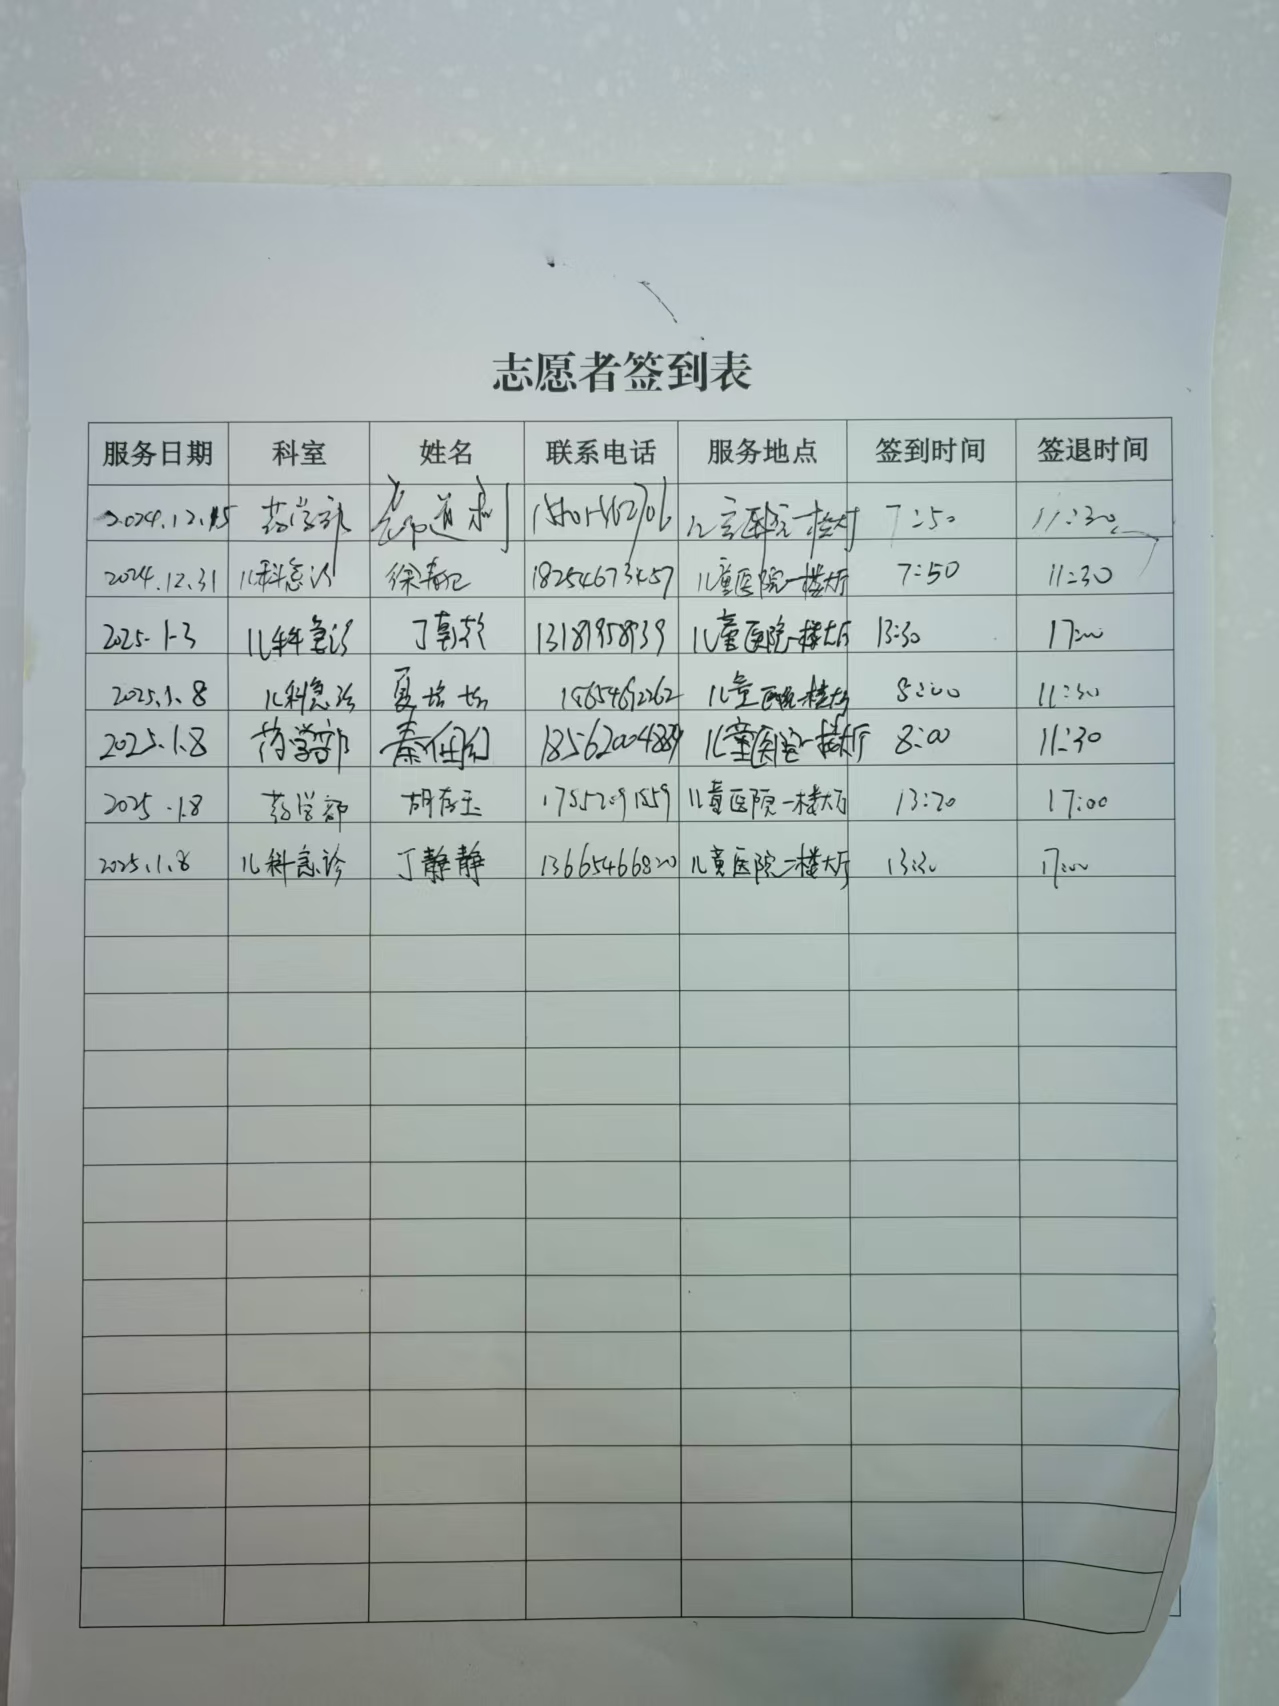 志愿者签到表
服务日期 科室 姓名 联系电话 服务地点 签到时间 签退时间
2024.12.15 药学部 儿童医院一楼大厅 7:50 11:30
2024.12.31 儿科急诊 徐 18254673457 儿童医院一楼大厅 7:50 11:30
2025.1.3 儿科急诊 丁 13181958939 儿童医院一楼大厅 13:30 17:00
2025.1.8 儿科急诊 夏培培 儿童医院一楼大厅 8:00 11:30
2025.1.8 药学部 秦 18562004889 儿童医院一楼大厅 8:00 11:30
2025.1.8 药学部 胡存玉 17552091559 儿童医院一楼大厅 13:20 17:00
2025.1.8 儿科急诊 丁静静 13665466820 儿童医院二楼大厅 13:30 17:00